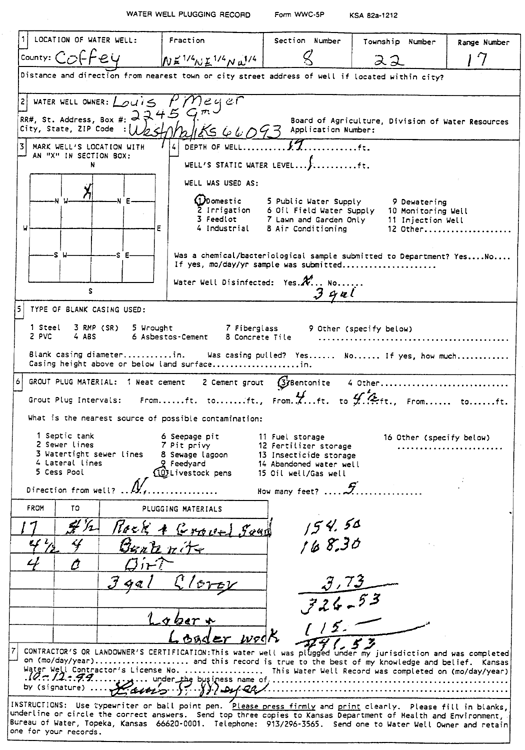 WATER WELL PLUGGING RECORD Form WWC-5P KSA 82a-1212
1 LOCATION OF WATER WELL: Fraction Section Number Township Number Range Number
County: Coffey NE 1/4 NE 1/4 NW 1/4 8 22 17
Distance and direction from nearest town or city street address of well if located within city?
2 WATER WELL OWNER: Louis P Meyer
RR#, St. Address, Box #: 2245 9m Board of Agriculture, Division of Water Resources
City, State, ZIP Code : Westphalia KS 66093 Application Number:
3 MARK WELL'S LOCATION WITH AN "X" IN SECTION BOX:
N
X
N W N E
W E
S W S E
S
4 DEPTH OF WELL......17......ft.
WELL'S STATIC WATER LEVEL...........ft.
WELL WAS USED AS:
1 Domestic 5 Public Water Supply 9 Dewatering
2 Irrigation 6 Oil Field Water Supply 10 Monitoring Well
3 Feedlot 7 Lawn and Garden Only 11 Injection Well
4 Industrial 8 Air Conditioning 12 Other...........
Was a chemical/bacteriological sample submitted to Department? Yes....No....
If yes, mo/day/yr sample was submitted...................
Water Well Disinfected: Yes.X... No......
3 gal
5 TYPE OF BLANK CASING USED:
1 Steel 3 RMP (SR) 5 Wrought 7 Fiberglass 9 Other (specify below)
2 PVC 4 ABS 6 Asbestos-Cement 8 Concrete Tile ...........................
Blank casing diameter...........in. Was casing pulled? Yes...... No...... If yes, how much..........
Casing height above or below land surface...................in.
6 GROUT PLUG MATERIAL: 1 Neat cement 2 Cement grout 3 Bentonite 4 Other...................
Grout Plug Intervals: From.....ft. to......ft., From.4...ft. to 4 1/2 ft., From...... to......ft.
What is the nearest source of possible contamination:
1 Septic tank 6 Seepage pit 11 Fuel storage 16 Other (specify below)
2 Sewer lines 7 Pit privy 12 Fertilizer storage ......................
3 Watertight sewer lines 8 Sewage lagoon 13 Insecticide storage
4 Lateral lines 9 Feedyard 14 Abandoned water well
5 Cess Pool 10 Livestock pens 15 Oil well/Gas well
Direction from well? ..N............. How many feet? ..5............
FROM TO PLUGGING MATERIALS
17 4 1/2 Rock & Gravel Sand 154.50
4 1/2 4 Bentnite 168.30
4 0 Dirt
3 gal Clorox 3.73
326.53
Labor + 115.—
Loader work 441.53
7 CONTRACTOR'S OR LANDOWNER'S CERTIFICATION: This water well was plugged under my jurisdiction and was completed
on (mo/day/year)................... and this record is true to the best of my knowledge and belief. Kansas
Water Well Contractor's License No. .................. This Water Well Record was completed on (mo/day/year)
10-12-99.... under the business name of..............................
by (signature) ...Louis P. Meyer.............
INSTRUCTIONS: Use typewriter or ball point pen. Please press firmly and print clearly. Please fill in blanks,
underline or circle the correct answers. Send top three copies to Kansas Department of Health and Environment,
Bureau of Water, Topeka, Kansas 66620-0001. Telephone: 913/296-3565. Send one to Water Well Owner and retain
one for your records.